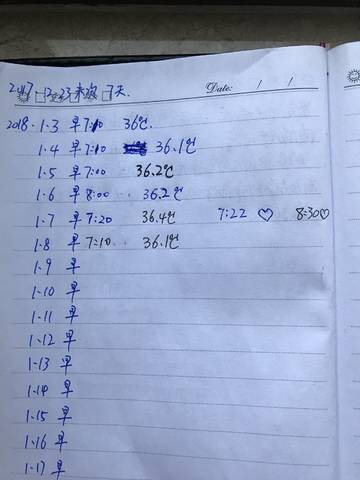 2017.12.23来泡 7天.
Date: / /
2018.1.3 早7:10 36℃.
1.4 早7:10 36.1℃
1.5 早7:00 36.2℃
1.6 早8:00 36.2℃
1.7 早7:20 36.4℃ 7:22 ♡ 8:30♡
1.8 早7:10 36.1℃
1.9 早
1.10 早
1.11 早
1.12 早
1.13 早
1.14 早
1.15 早
1.16 早
1.17 早